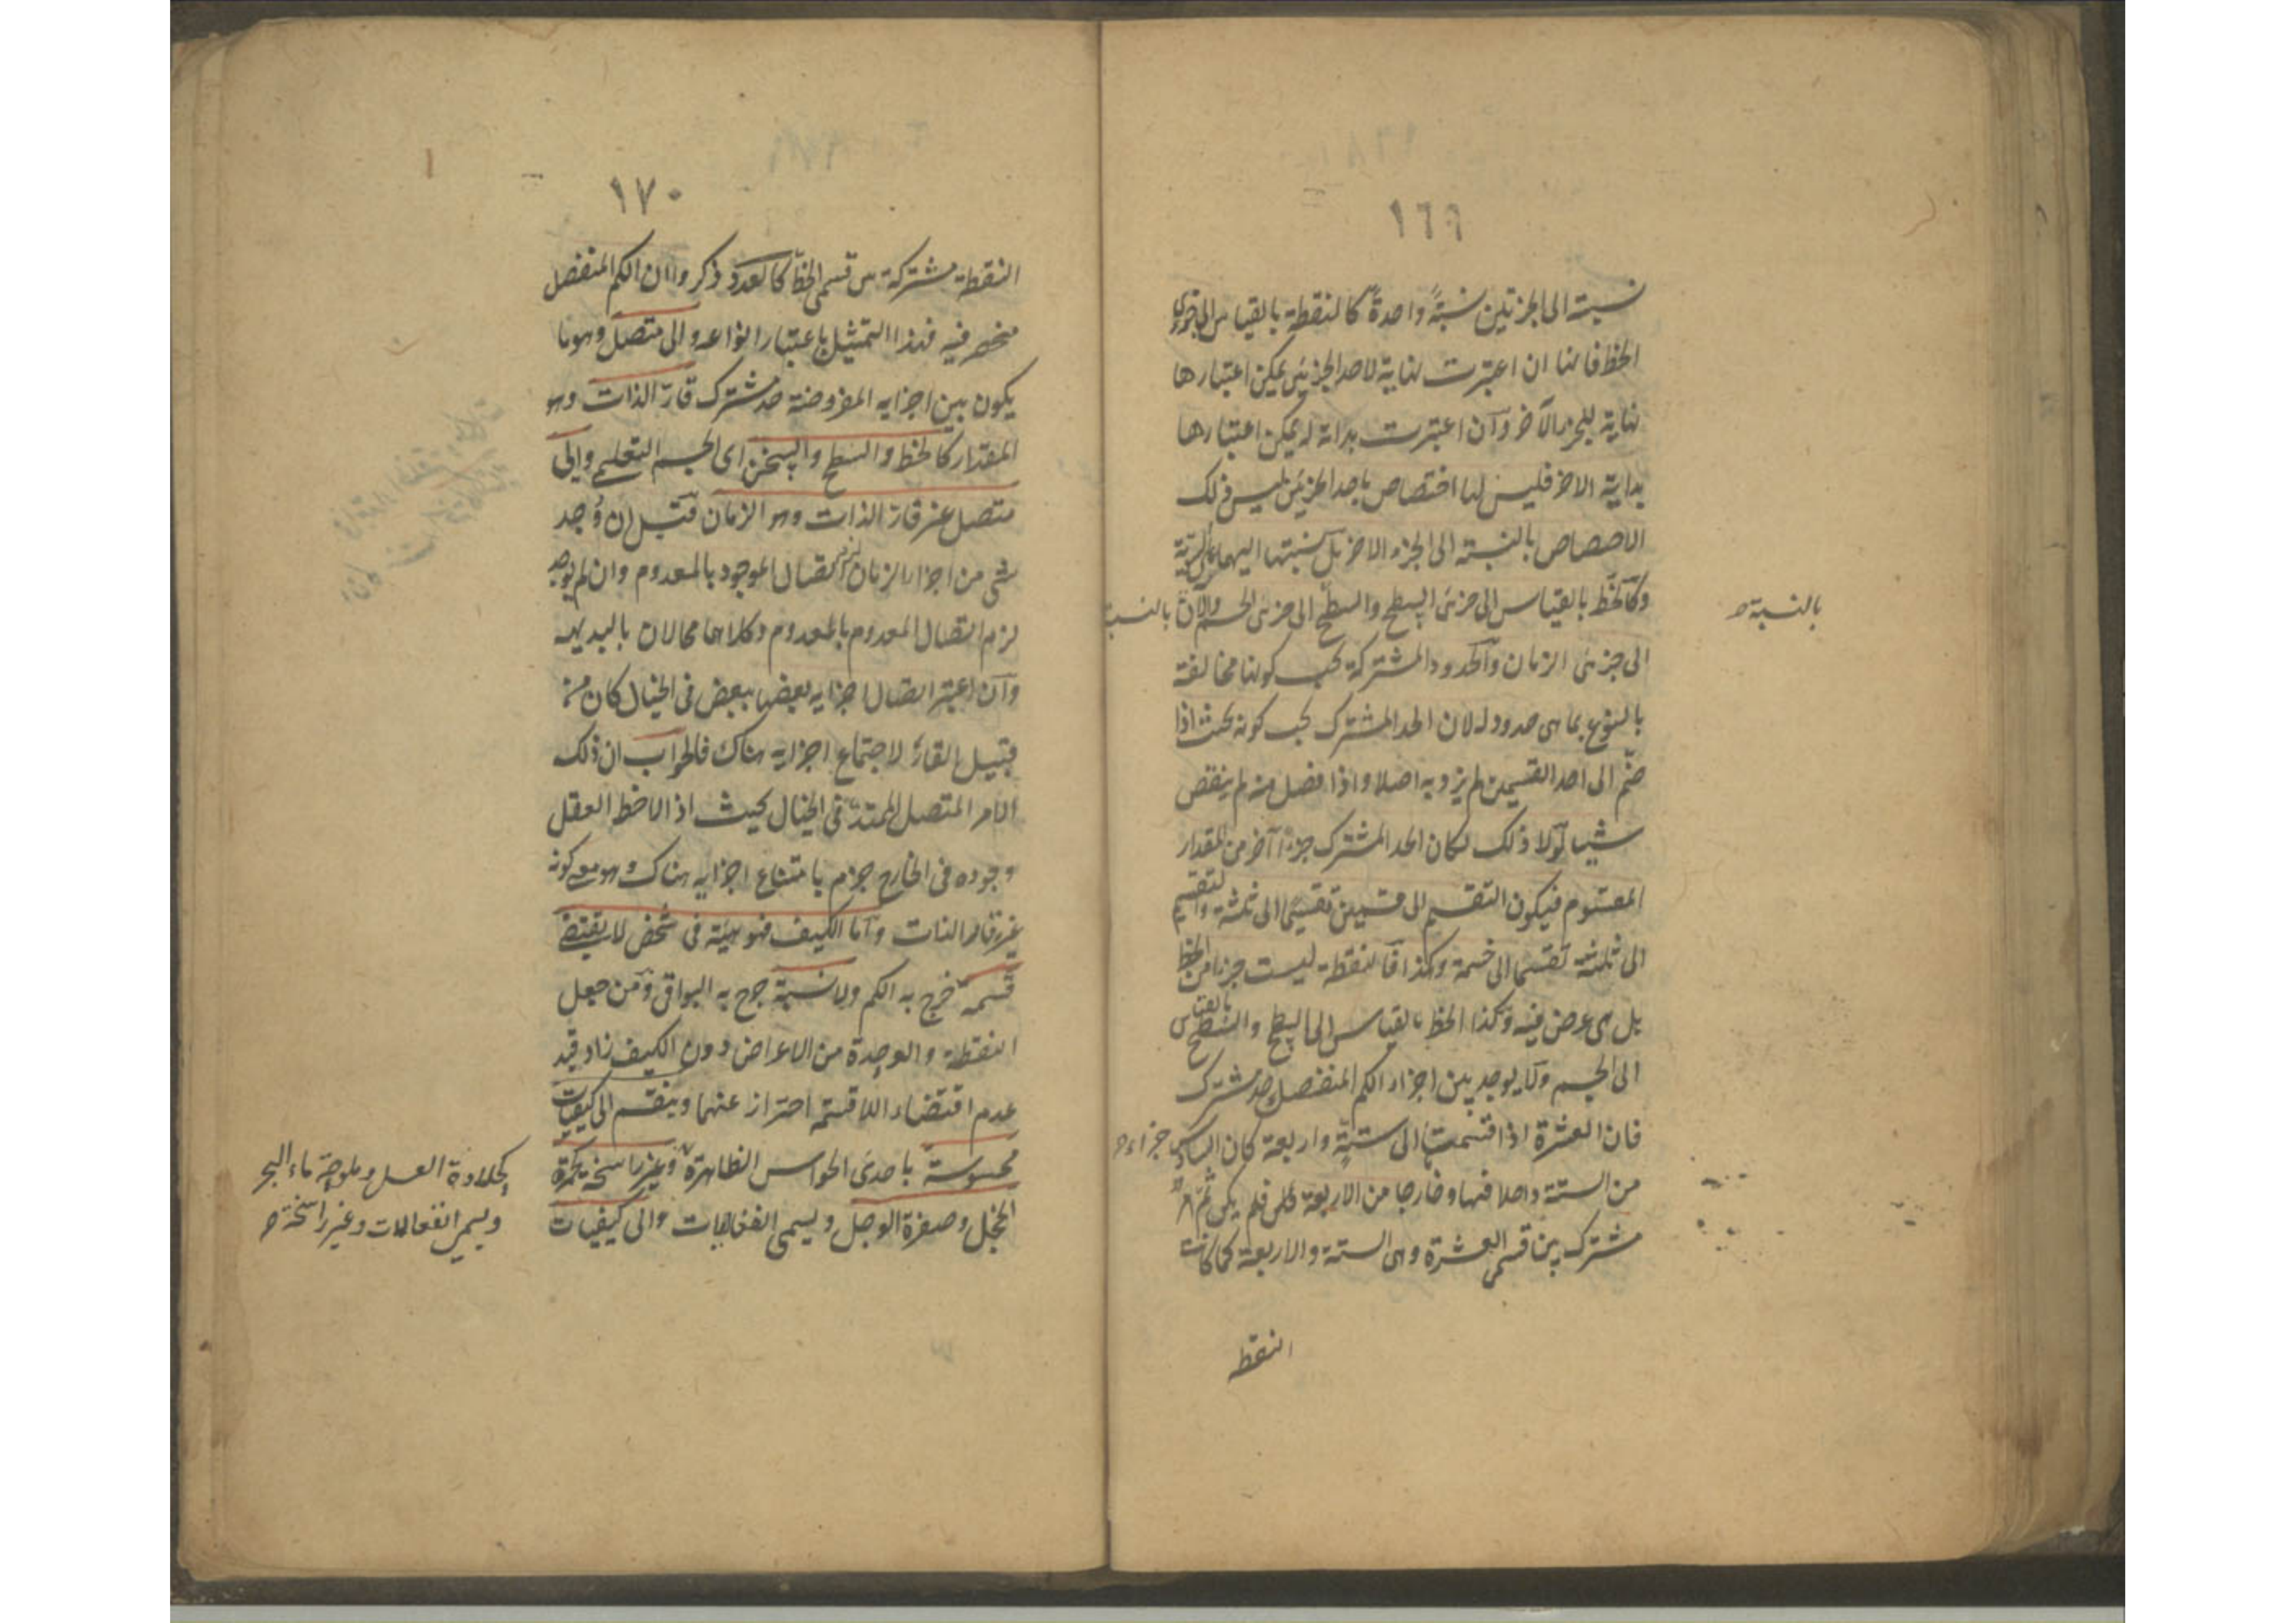 ١٦٩
نسبته الى الجزئين نسبةً واحدةً كالنقطة بالقياس الى جزئى
الخط فانها ان اعتبرت نهاية لاحد الجزئين يمكن اعتبارها
نهاية للجزء الآخر وان اعتبرت بداية له يمكن اعتبارها
بداية الاخر فليس لها اختصاص باحد الجزئين ليس ذلك
الاختصاص بالنسبة الى الجزء الاخر بل نسبتها اليهما على السوية
وكالخط بالقياس الى جزئى السطح والسطح الى جزئى الجسم والآن بالنسبة
بالنسبة
الى جزئى الزمان والحدود المشتركة يجب كونها مخالفة
بالنوع بما هى حدود له لان الحد المشترك يجب كونه بحيث اذا
ضمّ الى احد القسمين لم يزد به اصلا واذا فصل منه لم ينقص
شيئا لولا ذلك لكان الحد المشترك جزءاً آخر من المقدار
المقسوم فيكون التقسيم الى قسمين تقسيما الى ثلثة والتقسيم
الى ثلثة تقسيما الى خمسة وهكذا فالنقطة ليست جزءا من الخط
بل هى عرض فيه وكذا الخط بالقياس الى السطح والسطح بالقياس
الى الجسم ولا يوجد بين اجزاء الكم المنفصل حد مشترك
فان العشرة اذا قسمت الى ستة واربعة كان السادس جزاء
من الستة داخلا فيها وخارجا من الاربعة فلم يكن ثم امر
مشترك بين قسمى العشرة وهى الستة والاربعة كما كانت
النقط
١٧٠
النقطة مشتركة بين قسمى الخط كالعدد ذكروا ان الكم المنفصل
منحصر فيه فهذا التمثيل باعتبار انواعه والى متصل وهو ما
يكون بين اجزايه المفروضة حد مشترك قارّ الذات وهو
المقدار كالخط والسطح والثخن اى الجسم التعليمى والى
متصل غير قارّ الذات وهو الزمان قيل ان وُجد
شئ من اجزاء الزمان لزم اتصال الموجود بالمعدوم وان لم يوجد
لزم اتصال المعدوم بالمعدوم وكلاهما محالان بالبديهة
وان اعتبر اتصال اجزايه بعضها ببعض فى الخيال كان من
قبيل القارّ لاجتماع اجزايه هناك فالجواب ان ذلك
الامر المتصل الممتد فى الخيال بحيث اذا لاحظ العقل
وجوده فى الخارج جزم بامتناع اجزايه هناك وهو معى كونه
غير قار الذات واما الكيف فهو هيئة فى شخص لا يقتضى
قسمة خرج به الكم ولا نسبة خرج به البواقى ومن جعل
النقطة والوحدة من الاعراض دون الكيف زاد قيد
عدم اقتضاء اللاقسمة احترازا عنهما وينقسم الى كيفيات
محسوسة باحدى الحواس الظاهرة وغير راسخة كحمرة
الخجل وصفرة الوجل ويسمى انفعالات والى كيفيات
كحلاوة العسل وملوحة ماء البحر
ويسمى انفعالات وغير راسخة